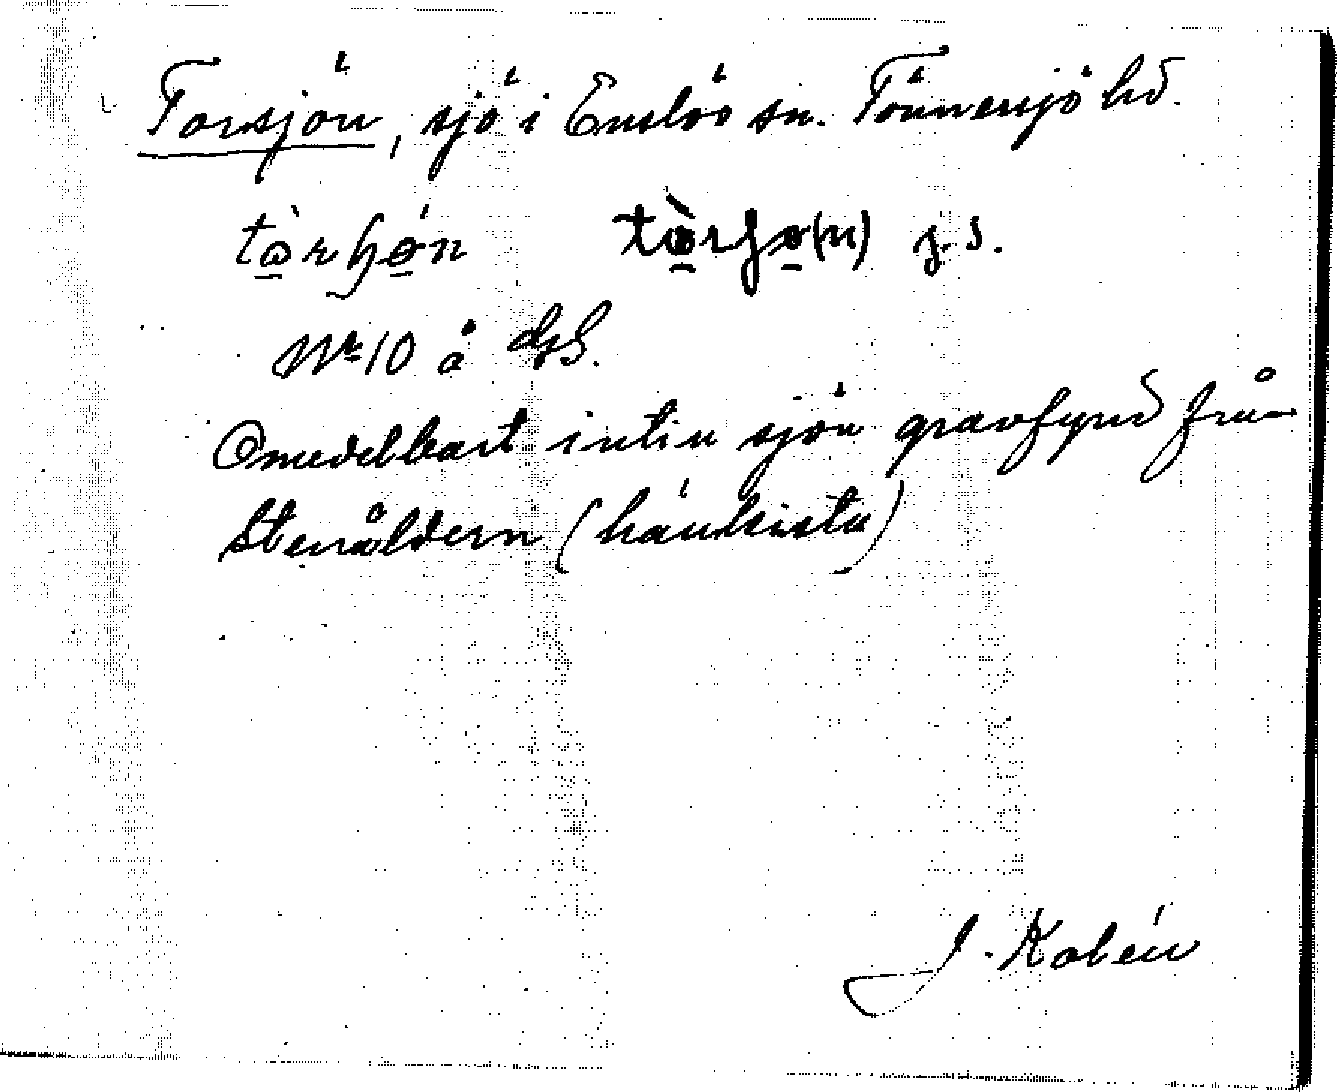 Torsjön, sjö i Enslöv sn. Tönnersjö hd.
tòrhǿn tòrhø(n) j.s.
Nr 10 å GS.
Omedelbart intin sjön gravfynd från
Stenåldern (hänkista)
J. Kalén